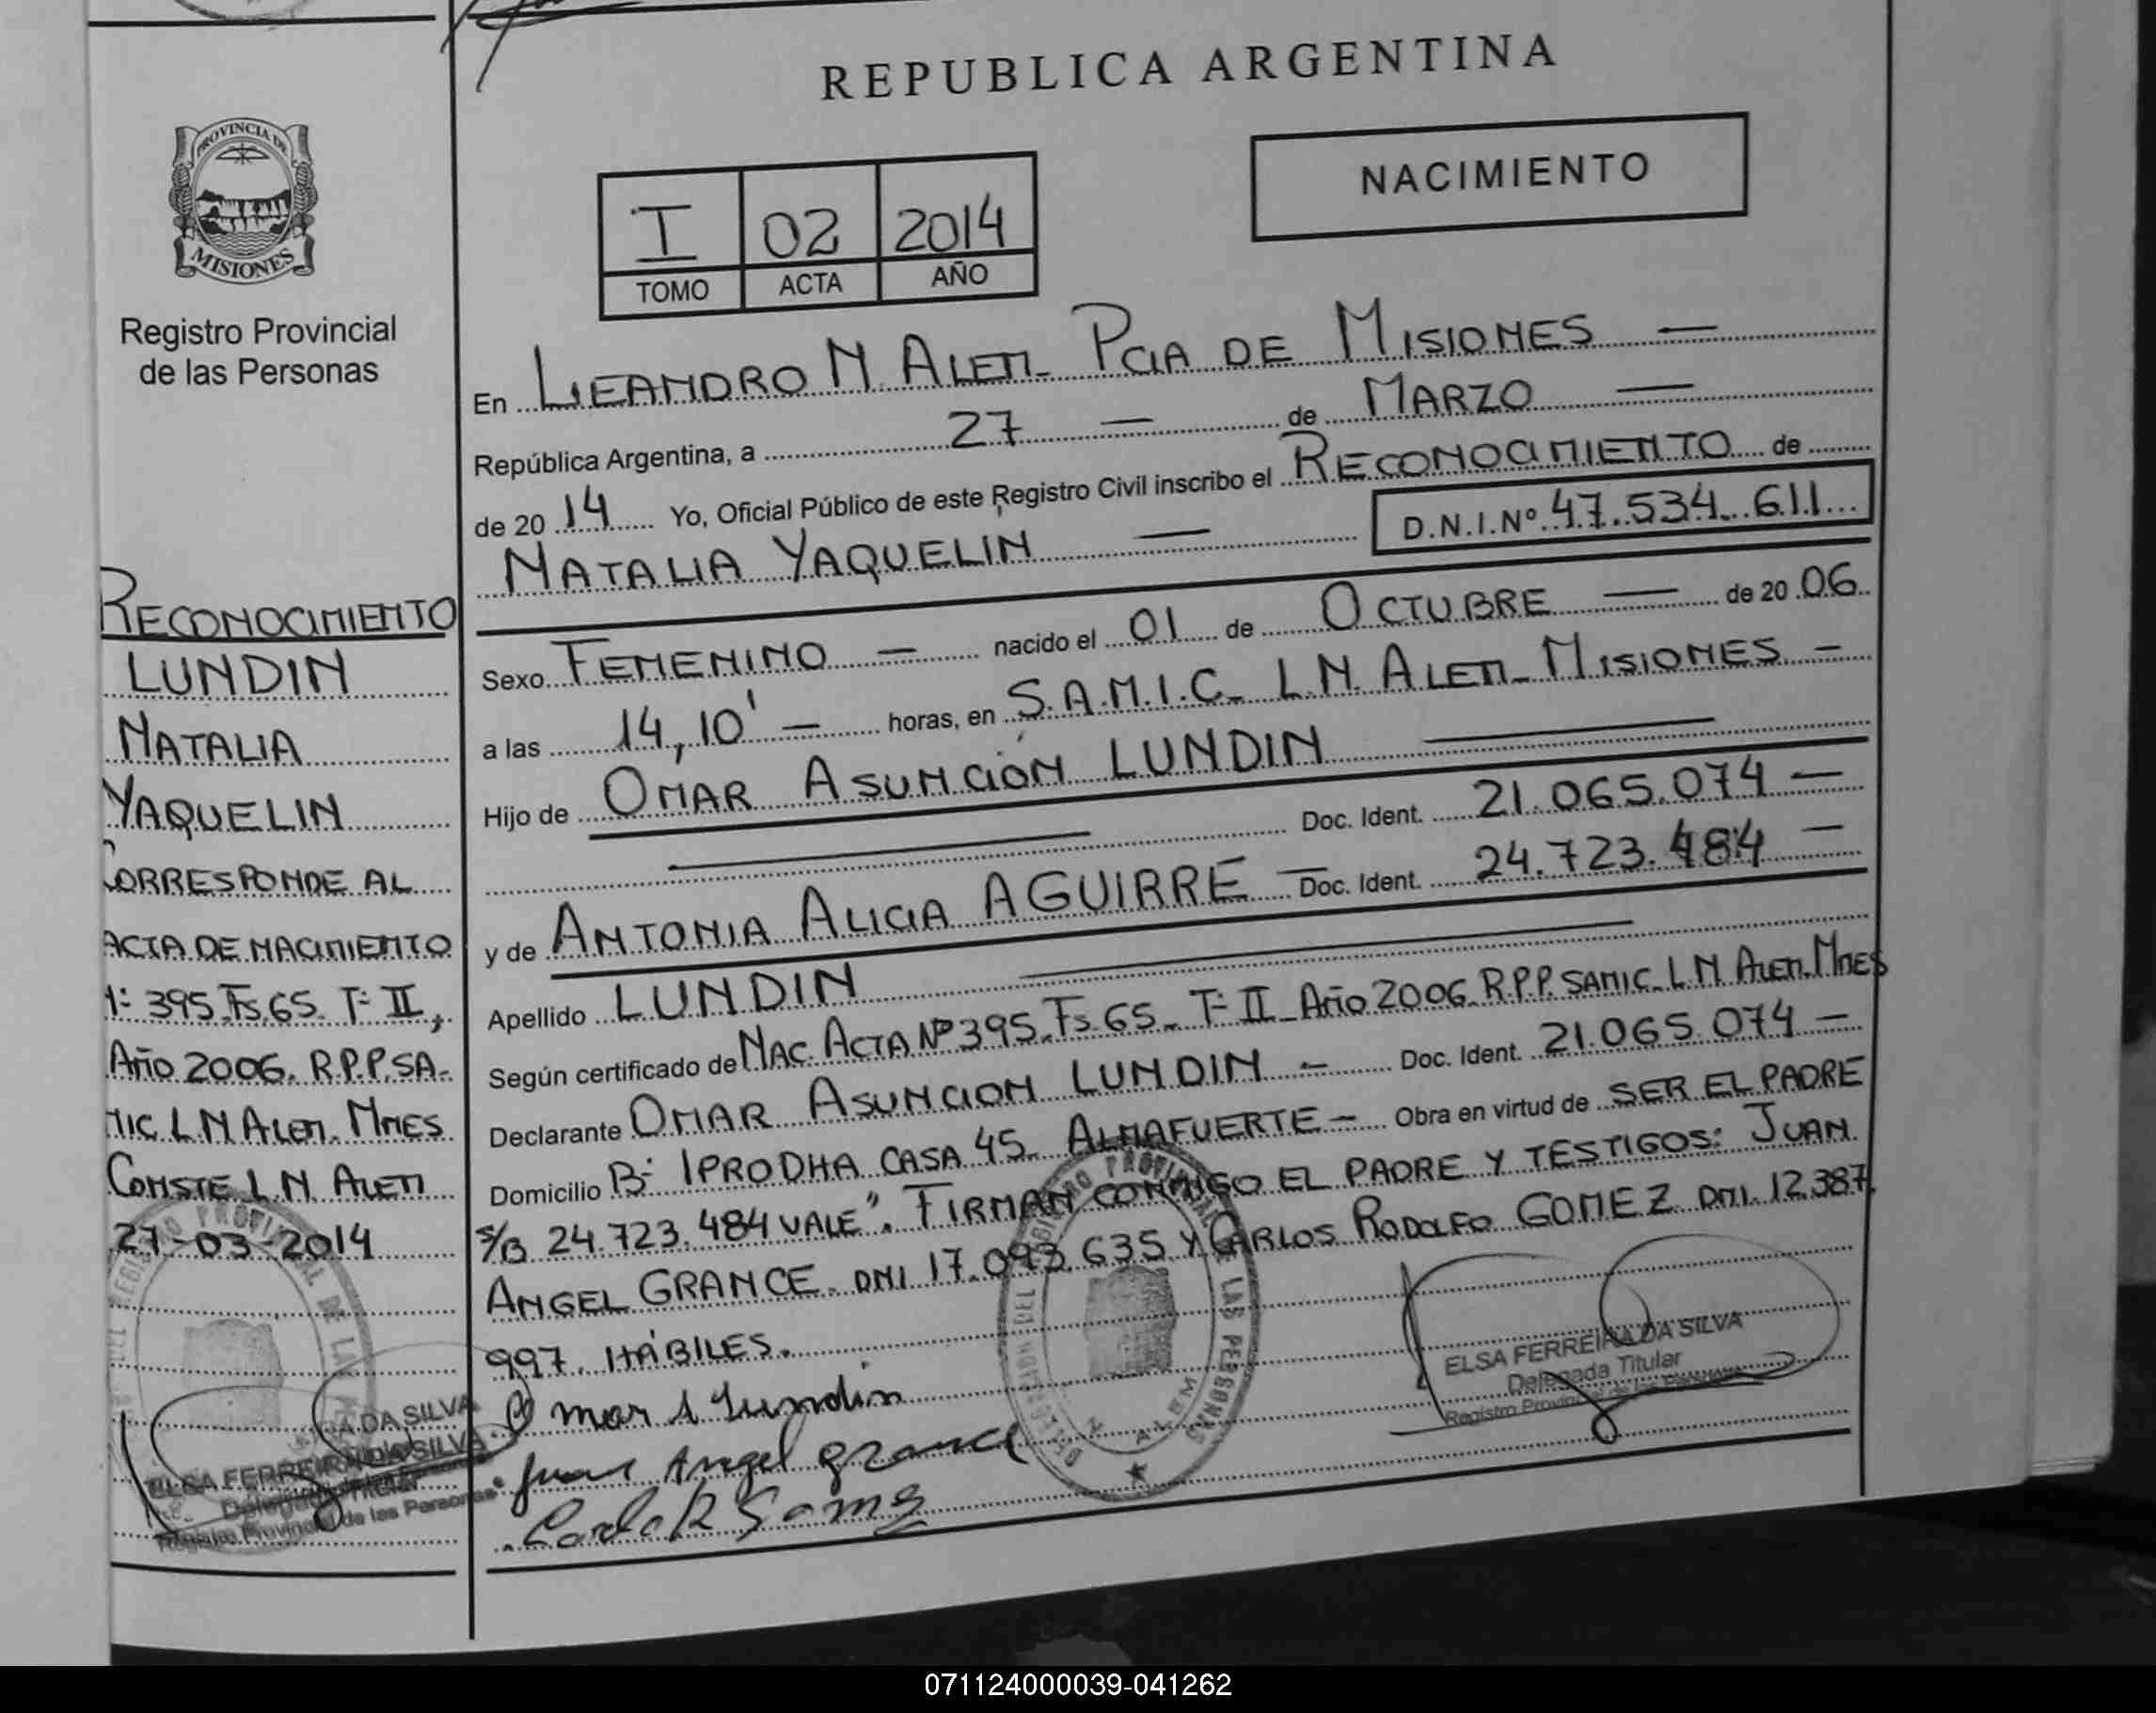 REPUBLICA ARGENTINA
PROVINCIA DE
MISIONES
Registro Provincial
de las Personas
I 02 2014
TOMO ACTA AÑO
NACIMIENTO
En LEANDRO N. ALEM - PCIA DE MISIONES —
República Argentina, a 27 — de MARZO —
de 20 14 Yo, Oficial Público de este Registro Civil inscribo el RECONOCIMIENTO de
NATALIA YAQUELIN — D.N.I.Nº 47.534.611
Sexo FEMENINO — nacido el 01 de OCTUBRE — de 20 06
a las 14,10' — horas, en S.A.M.I.C - L.N. ALEM - MISIONES —
Hijo de OMAR ASUNCIÓN LUNDIN
Doc. Ident. 21.065.074 —
y de ANTONIA ALICIA AGUIRRE — Doc. Ident. 24.723.484 —
Apellido LUNDIN
Según certificado de NAC. ACTA Nº 395. Fs 65 - Tº II - Año 2006. R.P.P. SAMIC. L N ALEM. MNES
Declarante OMAR ASUNCION LUNDIN — Doc. Ident. 21.065.074 —
Domicilio Bº IPRODHA CASA 45. ALMAFUERTE — Obra en virtud de SER EL PADRE
S/B 24.723.484 VALE". FIRMAN CONMIGO EL PADRE Y TESTIGOS: JUAN
ANGEL GRANCE. DNI 17.093.635 Y CARLOS RODOLFO GOMEZ DNI. 12.387.
997. HÁBILES.
Omar A Lundin
Juan Angel grance
Carlos R Gomez
ELSA FERREIRA DA SILVA
Delegada Titular
Registro Provincial de las Personas
RECONOCIMIENTO
LUNDIN
NATALIA
YAQUELIN
CORRESPONDE AL
ACTA DE NACIMIENTO
Nº 395. Fs. 65 Tº II,
Año 2006. R.P.P. SA-
MIC L N ALEM. MNES
CONSTE L N ALEM
27-03-2014
ELSA FERREIRA DA SILVA
Delegada Titular
Registro Provincial de las Personas
071124000039-041262